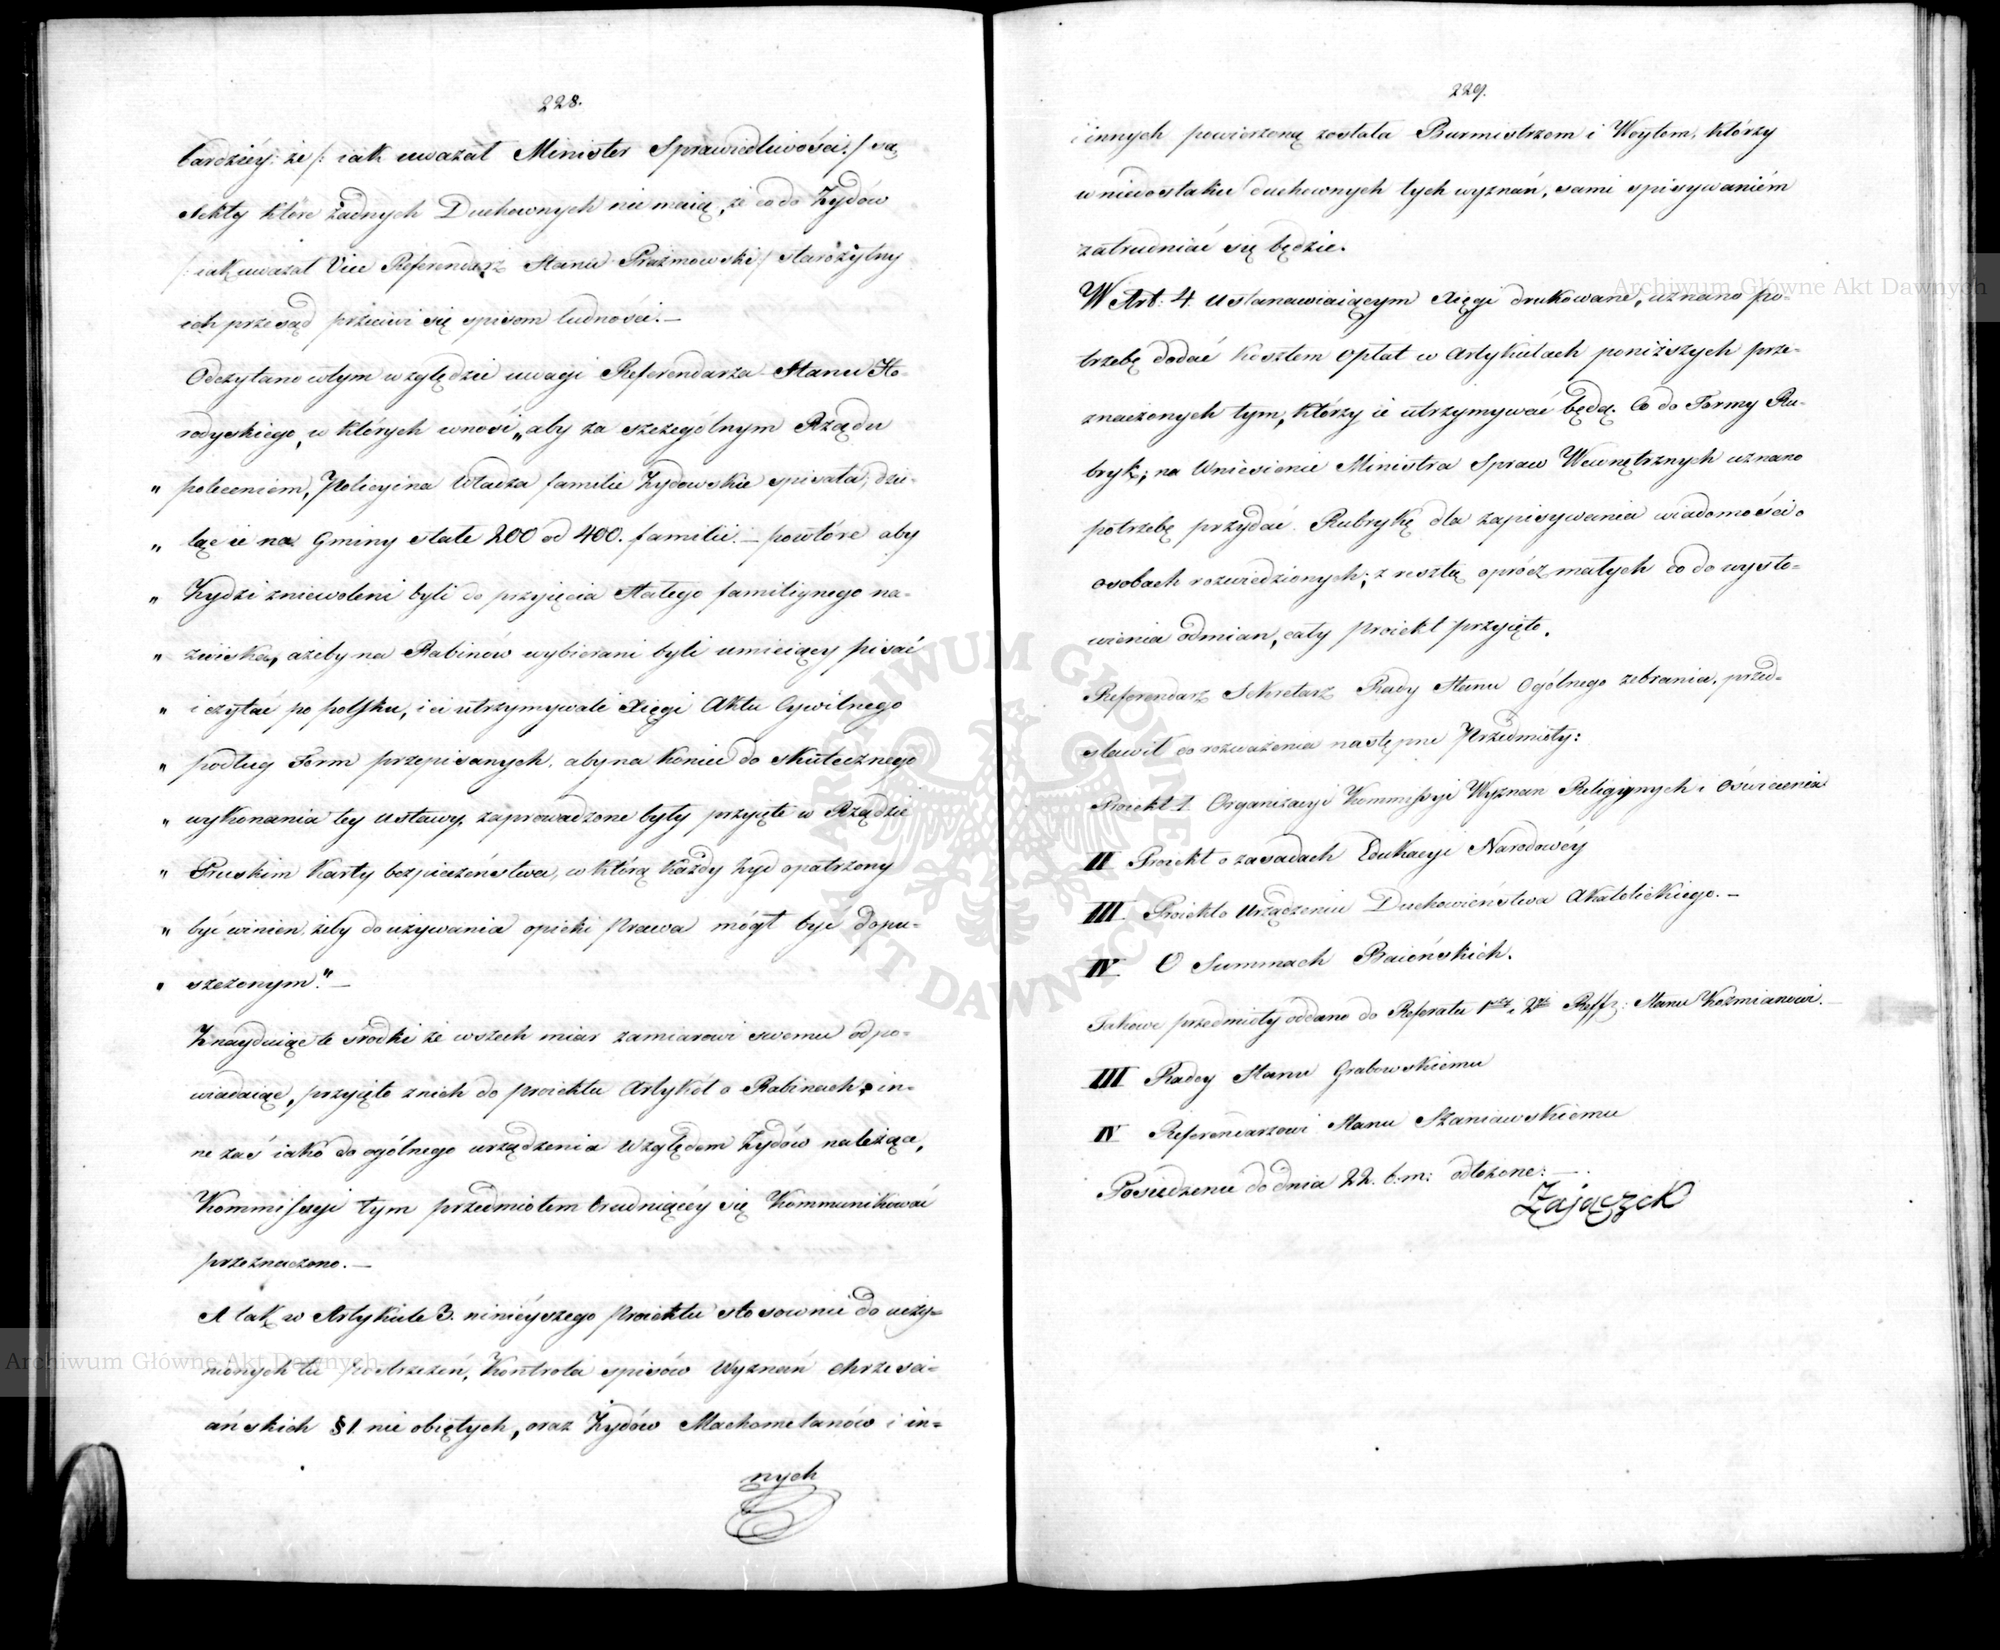 228.
bardziéy: że /: iak uważał Minister Sprawiedliwości :/ są
sekty które żadnych Duchownych nie maią, że co do Żydów
/: iak uważał Vice Referendarz Stanu Prażmowski :/ starożytny
ich przesąd przeciwi się spisom ludności. —
Odczytano w tym względzie uwagi Referendarza Stanu Ho-
rodyskiego, w których wnosi „aby za szczególnym Rządu
„ poleceniem, Policyina Władza familie Żydowskie spisała, dzie-
„ ląc ie na Gminy stałe 200 od 400. familii. — powtóre aby
„ Żydzi zniewoleni byli do przyięcia Stałego familiynego na-
„ zwiska, ażeby na Rabinów wybierani byli umieiący pisać
„ i czytać po polsku, i ci utrzymywali Xięgi Aktu Cywilnego
„ podług Form przepisanych, aby na koniec do skutecznego
„ wykonania tey ustawy, zaprowadzone były przyięte w Rządzie
„ Pruskim Karty bezpieczeństwa, w którą każdy Żyd opatrzony
„ być winien, żeby do używania opieki Prawa mógł być dopu-
„ szczonym." —
Znayduiąc te środki ze wszech miar zamiarowi swemu odpo-
wiadaiące, przyięto z nich do proiektu Artykół o Rabinach, in-
ne zaś iako do ogólnego urządzenia względem Żydów należące,
Kommissyi tym przedmiotem trudniącéy się Kommunikować
przeznaczono. —
A tak w Artykule 3. ninieyszego Proiektu stosownie do uczy-
nionych tu postrzeżeń, Kontrola spisów Wyznań chrześci-
ańskich § 1 nie obiętych, oraz Żydów Machometanów i in-
nych
229.
i innych powierzoną została Burmistrzom i Woytom, którzy
w niedostatku duchownych tych wyznań, sami spisywaniém
zatrudniać się będzie.
W Art: 4 ustanawiaiącym Xięgi drukowane, uznano po-
trzebę dodać kosztem opłat w Artykułach poniższych prze-
znaczonych tym, którzy ie utrzymywać będą. Co do Formy Ru-
bryk; na Wniesienie Ministra Spraw Wewnętrznych uznano
potrzebę przydać Rubrykę dla zapisywania wiadomości o
osobach rozwiedzionych; z resztą oprócz małych co do wysło-
wienia odmian, cały Proiekt przyięto.
Referendarz Sekretarz Rady Stanu Ogólnego zebrania, przed-
stawił do rozważenia następne Przedmioty:
Proiekt I. Organizacyi Kommissyi Wyznan Religiynych i Oświecenia
II Proiekt o zasadach Edukacyi Narodowéy
III Proiekt o Urządzeniu Duchowieństwa Akatolickiego. —
IV O Summach Baiońskich.
Takowe przedmioty oddano do Referatu 1go i 2go Reffr: Stanu Koźmianowi.
III Radcy Stanu Grabowskiemu
IV Referendarzowi Stanu Staniawskiemu
Posiedzenie do dnia 22. b: m: odłożone. —
Zajączek
Archiwum Główne Akt Dawnych
Archiwum Główne Akt Dawnych
ARCHIWUM GŁÓWNE AKT DAWNYCH